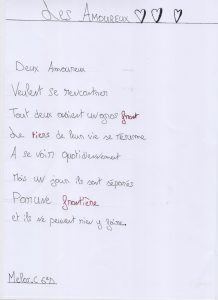 Les Amoureux ♡ ♡ ♡
Deux Amoureux
Veulent se rencontrer
Tout deux avient un gros front
Le tiers de leur vie se résume
A se voir quotidiennement
Mais un jour ils sont séparés
Par une frontière
et ils ne peuvent rien y faire.
Melor.C 6°1